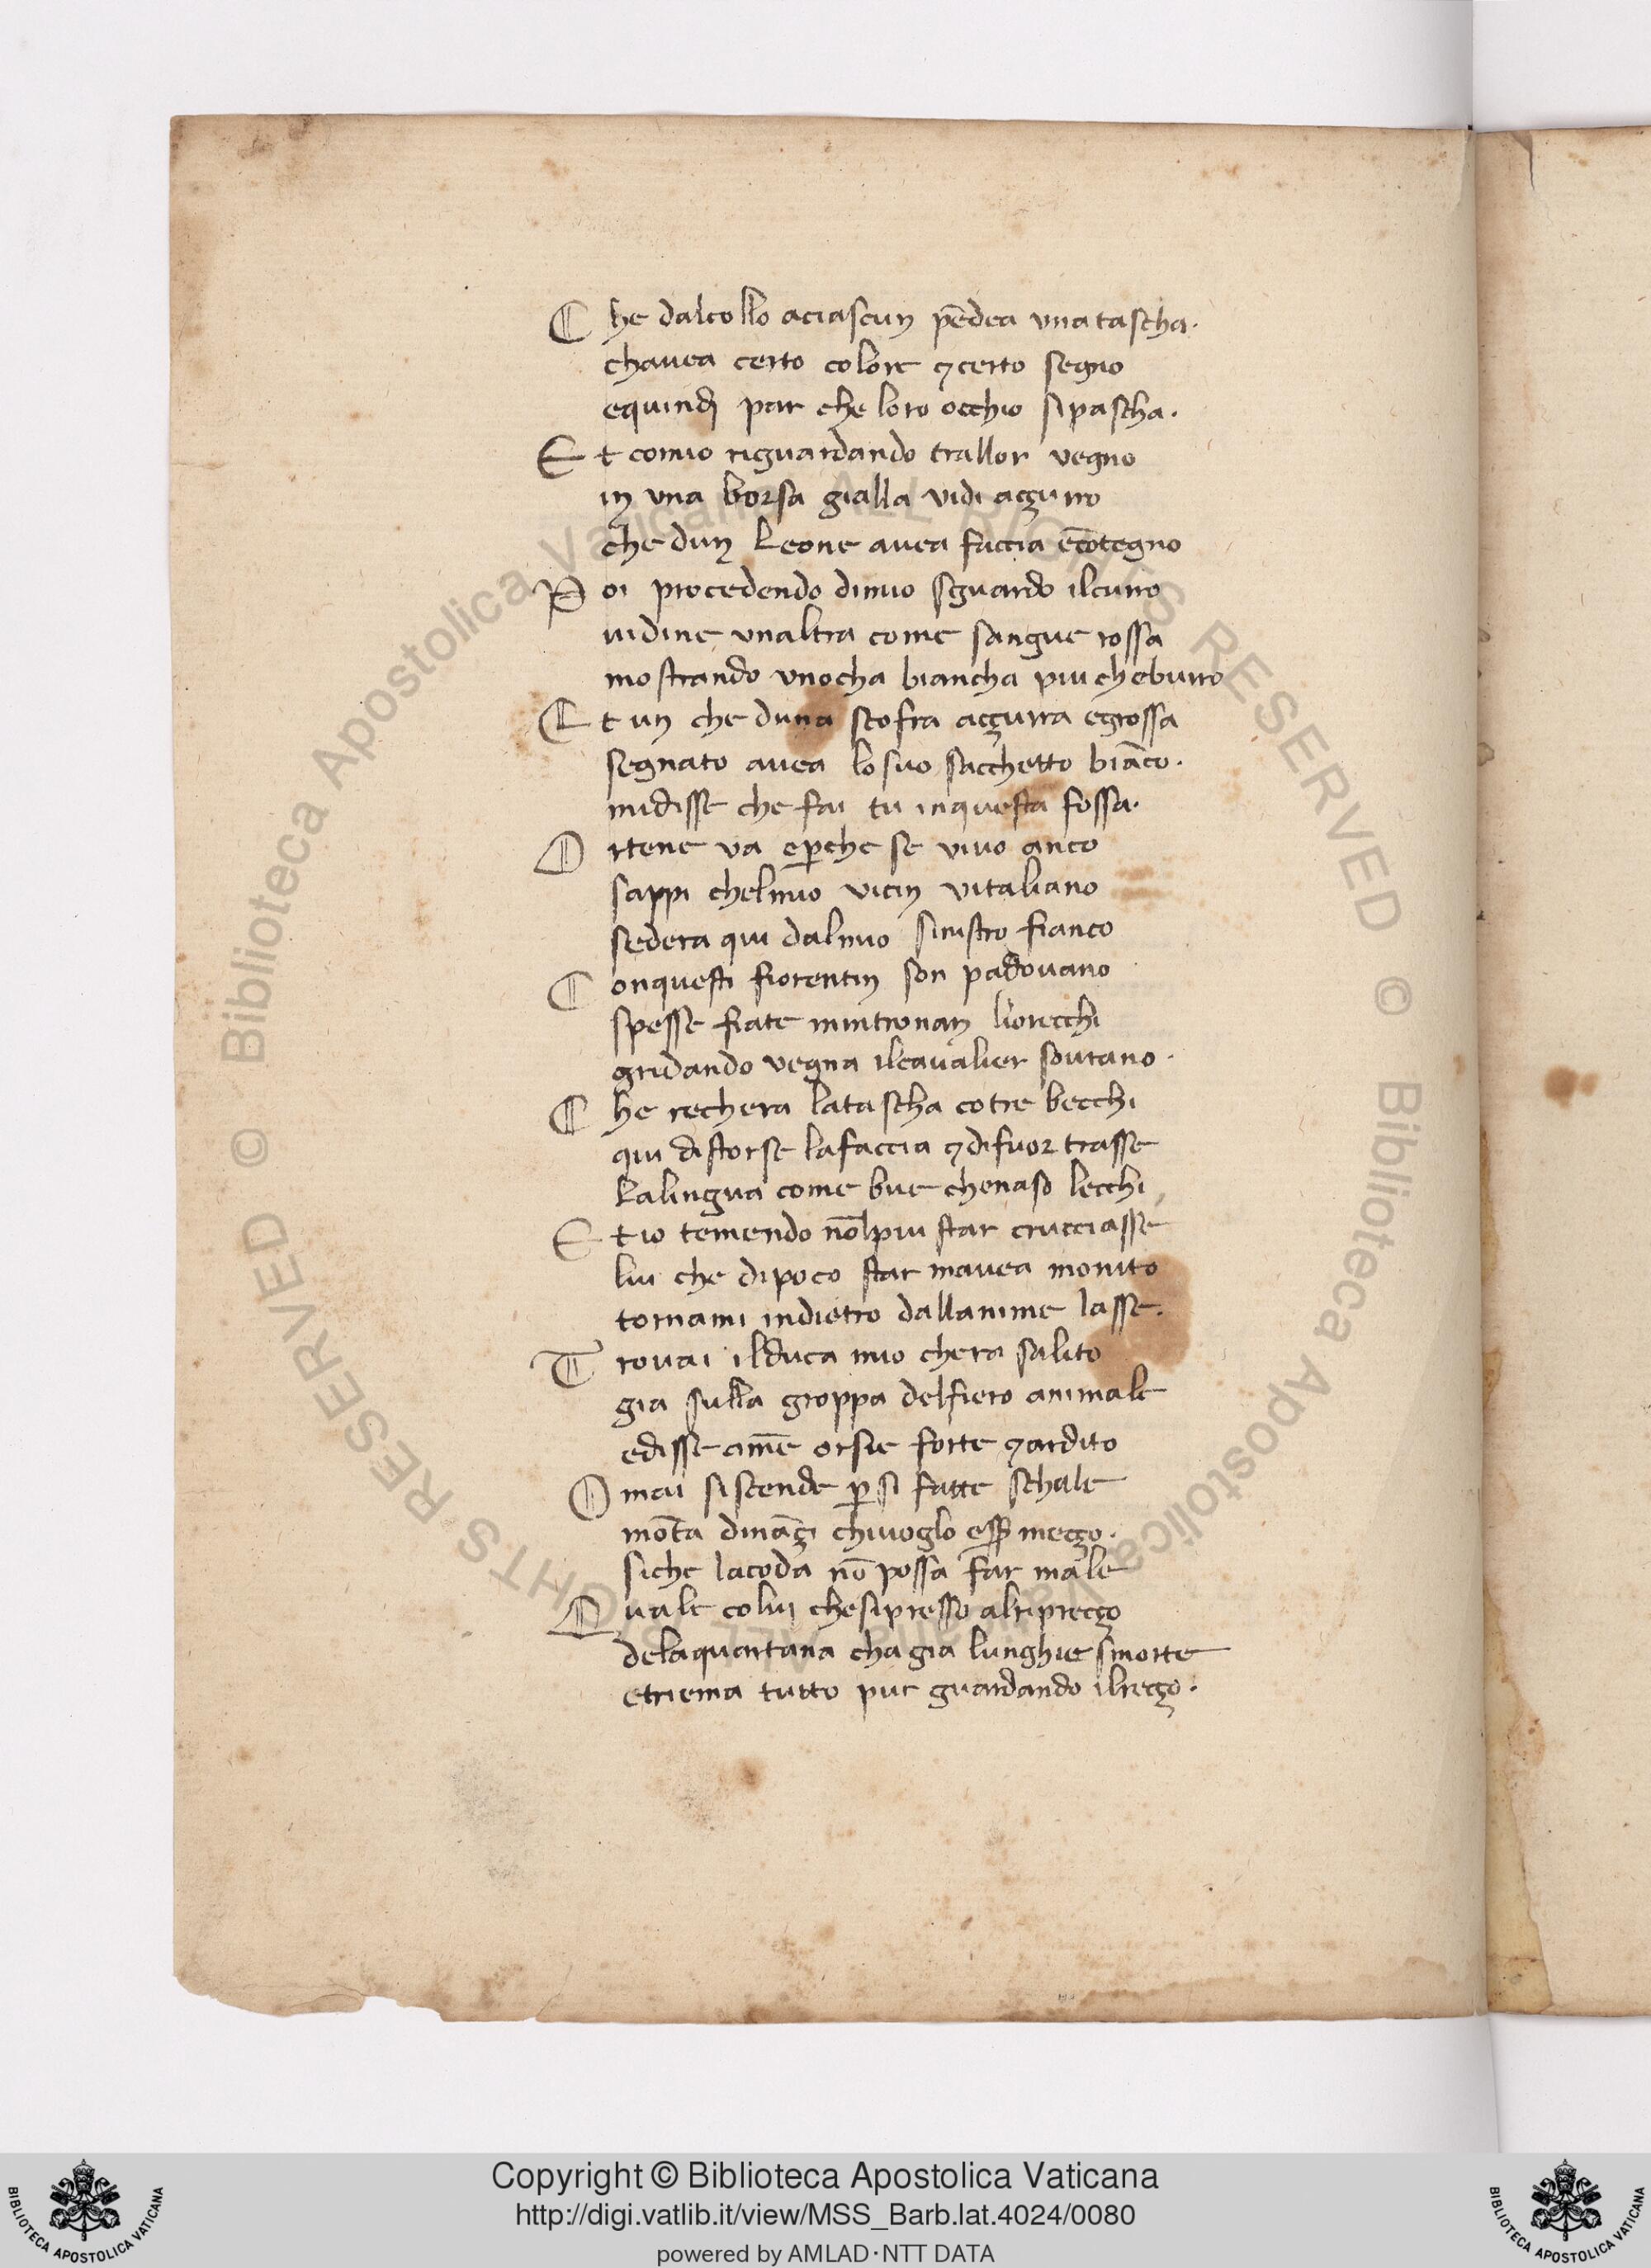 Che dalcollo aciascun pēdea una tascha.
chauea certo colore ⁊certo segno
equindj par che loro occhio sipascha.
Et comio riguardando trallor uegno
in una borsa gialla uidi açurro
che dun leone auea faccia ecōtegno
Poi procedendo dimio sguardo ilcurro
uidine unaltra come sangue rossa
mostrando unocha biancha piu cheburro
Et un che duna scrofa açurra egrossa
segnato auea losuo sacchetto biāco.
midisse che fai tu inquesta fossa.
Ortene ua eꝑche se uiuo anco
sappi chelmio uicin uitaliano
sedera qui dalmio sinistro fianco
Conquesti fiorentin son padouano
spesse fiate mintronan liorecchi
gridando uegna ilcaualier sourano.
Che rechera latascha cotre becchi
qui distorse lafaccia ⁊difuor trasse
Lalingua come bue chenaso lecchi
Et io temendo nōlpiu star crucciasse
lui che dipoco star mauea monito
tornami indietro dallanime lasse.
Trouai ilduca mio chera salito
gia sulla groppa delfiero animale
edisse amē orsie forte ⁊ardito
Omai siscende ꝑ si fatte schale
mōta dināçi chiuoglo eēꝑ meçço.
siche lacoda nō possa far male
Quale colui chesipresso alripreçço
delaquartana cha gia lunghie smorte
etriema tutto pur guardando ilreçço.
Copyright © Biblioteca Apostolica Vaticana
http://digi.vatlib.it/view/MSS_Barb.lat.4024/0080
powered by AMLAD·NTT DATA
BIBLIOTECA APOSTOLICA VATICANA
BIBLIOTECA APOSTOLICA VATICANA
© Biblioteca Apostolica Vaticana ALL RIGHTS RESERVED © Biblioteca Apostolica Vaticana ALL RIGHTS RESERVED